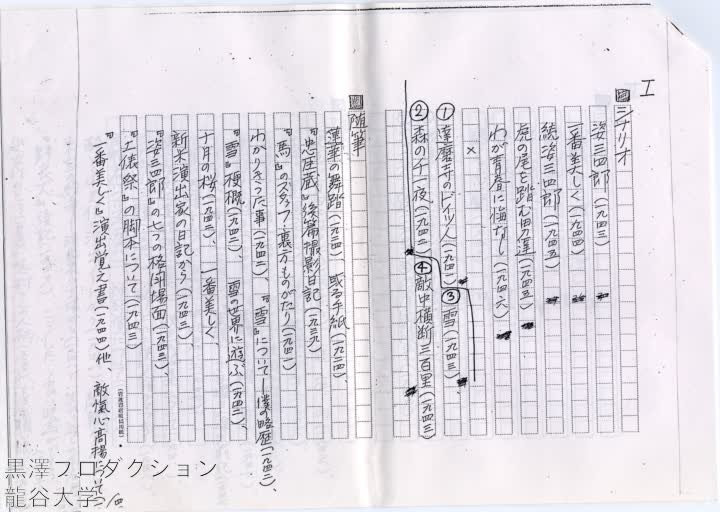 I
図シナリオ
姿三四郎(一九四三)
一番美しく(一九四四)
続姿三四郎(一九四五)
虎の尾を踏む男達(一九四五)
わが青春に悔なし(一九四六)
×
①達磨寺のドイツ人(一九四一) ③雪(一九四三)
②森の千一夜(一九四二) ④敵中横断三百里(一九四三)
図随筆
蓮華の舞踏(一九三四) 或る手紙(一九二四)、
『忠臣蔵』後篇撮影日記(一九三九)
『馬』のスタッフ・裏方ものがたり(一九四一)
わかりきった事(一九四二)、『雪』について―僕の略歴(一九四二)、
『雪』梗概(一九四二)、雪の世界に遊ぶ(一九四二)、
十月の桜(一九四二)、一番美しく
新米演出家の日記から(一九四三)
『姿三四郎』の七つの格闘場面(一九四三)、
『土俵祭』の脚本について(一九四三)
『一番美しく』演出覚え書(一九四四)他、敵愾心高揚
黒澤プロダクション
龍谷大学